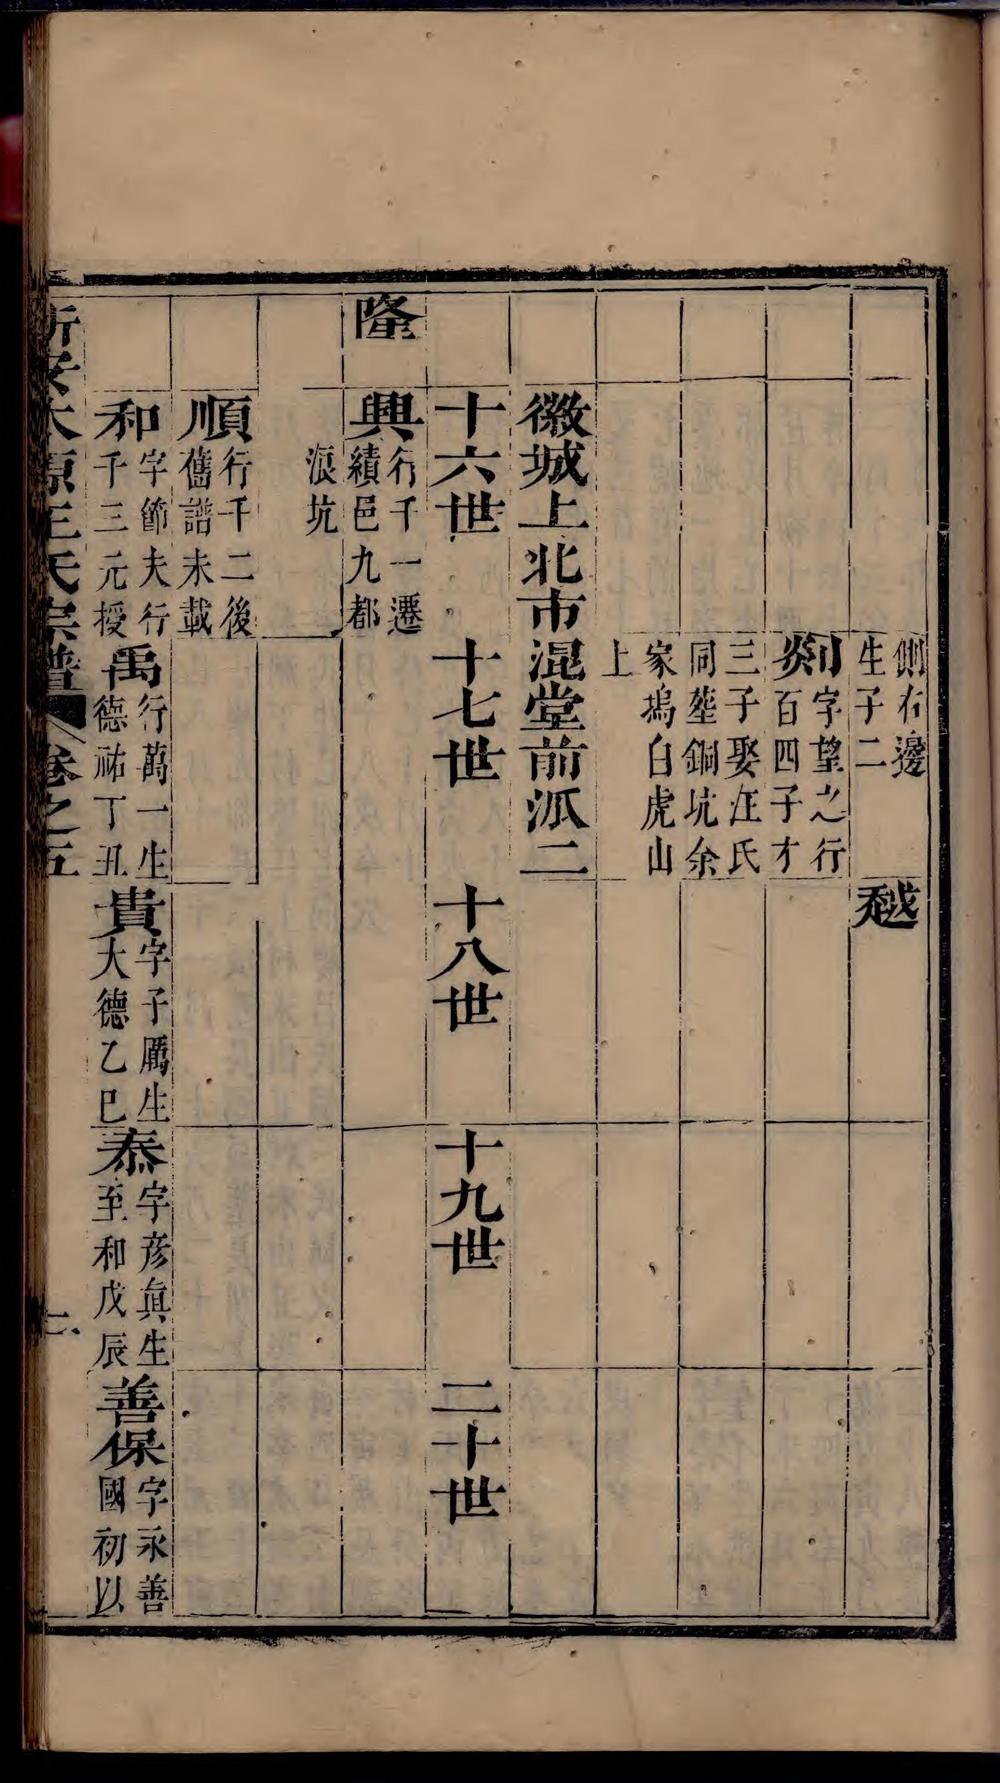 側右邊
生子二
越
字望之行
百四子才
三子娶汪氏
同塟銅坑余
家塢白虎山
上
徽城上北市混堂前派二
十六世
十七世
十八世
十九世
二十世
隆
興
行千一遷
績邑九都
浪坑
順
行千二後
舊譜未載
和
字節夫行
千三元授
禹
行萬一生
德祐丁丑
貴
字子厲生
大德乙巳
泰
字彥眞生
至和戊辰
善保
字永善
國初以
新安大原王氏宗譜
卷之五